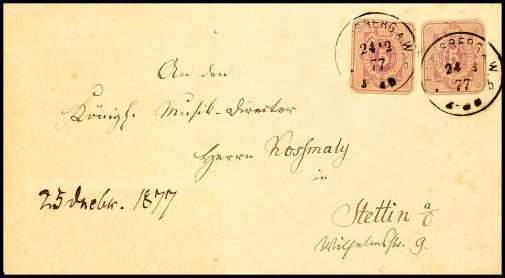 SBERG A.W.
24 12
77
5
SBERG A.W.
24
77
An den
Königl. Musik-Director
Herrn Kossmaly
in
Stettin a/O
Wilhelmstr. 9.
25 Decbr. 1877